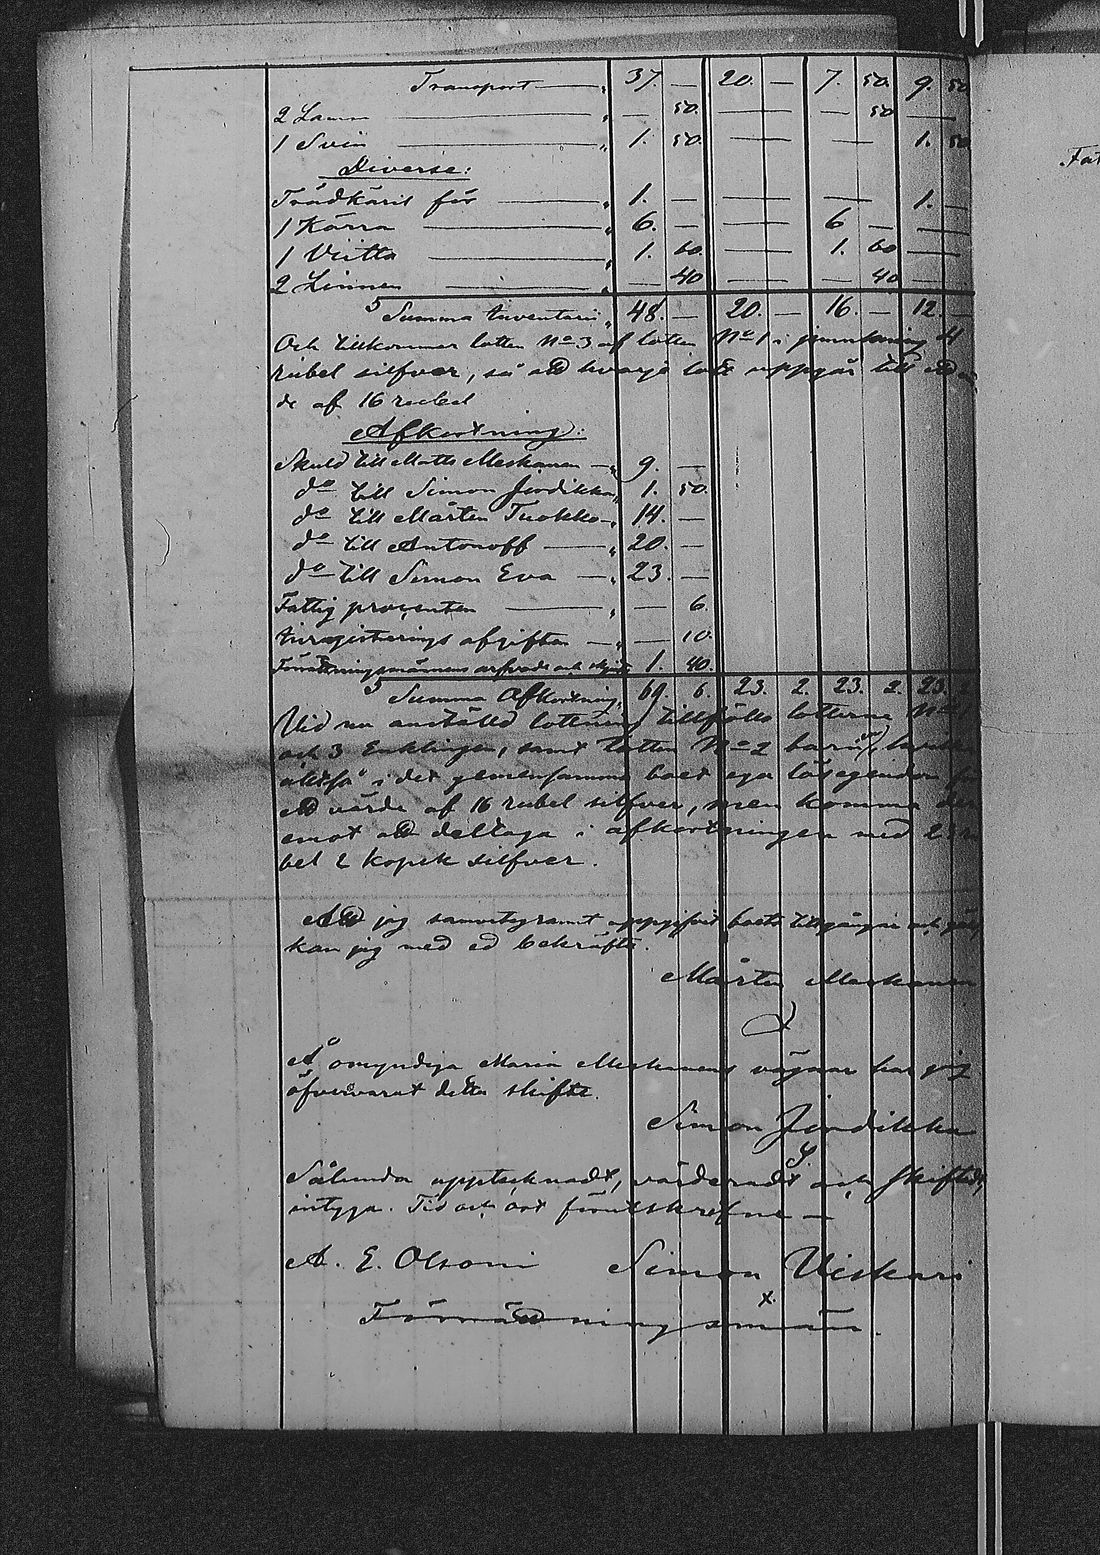 Transport — „ 37. — 20. — 7. 50. 9. 50
2 Lamm — „ — 50. — — 50 —
1 Svin — „ 1. 50. — — 1. 50
Diverse:
Trädkäril för — „ 1. — — — 1. —
1 Kärra — „ 6. — — 6 — —
1 — „ 1. 60. — 1. 60 —
2 Linnen — „ — 40 — — 40 —
Summa Inventarii „ 48. — 20. — 16. — 12. —
Och tillkommer lotten No 3 af lotten No 1 i jemnkning 4
rubel silfver, så att hvarje lott uppgår till
de af 16 rubel
Afkortning:
Skuld till Matts Meskanen — „ 9. —
do till Simon Juvikka „ 1. 50.
do till Mårten Tuokko „ 14. —
do till Antonoff — „ 20. —
do till Simon Eva — „ 23. —
Fattig procenten — „ — 6.
Inregistrerings afgiften — „ — 10.
Förrättningsmännens arfvode och 1. 40.
Summa Afkortning, 69. 6. 23. 2. 23. 2. 23.
Vid nu anställd lottning tillföllo lotterne No 1
och 3 Enklingen, samt lotten No 2
altså i det gemensamma boet ega lösegendom
ett värde af 16 rubel silfver, men komma der
emot att deltaga i afkortningen med 23 ru
bel 2 kopek silfver.
Att jag samvetsgrant uppgifvit boets tillgångar och
kan jag med ed bekräfta.
Mårten Meskanen
Å omyndiga Maria Meskanens vägnar har jag
öfvervarat detta skifte.
Simon
Sålunda upptecknadt, värderadt och skiftadt,
intyga. Tid och ort förutskrefne —
A. E. Olsoni Simon Viskari
x
Förrättningsmän.